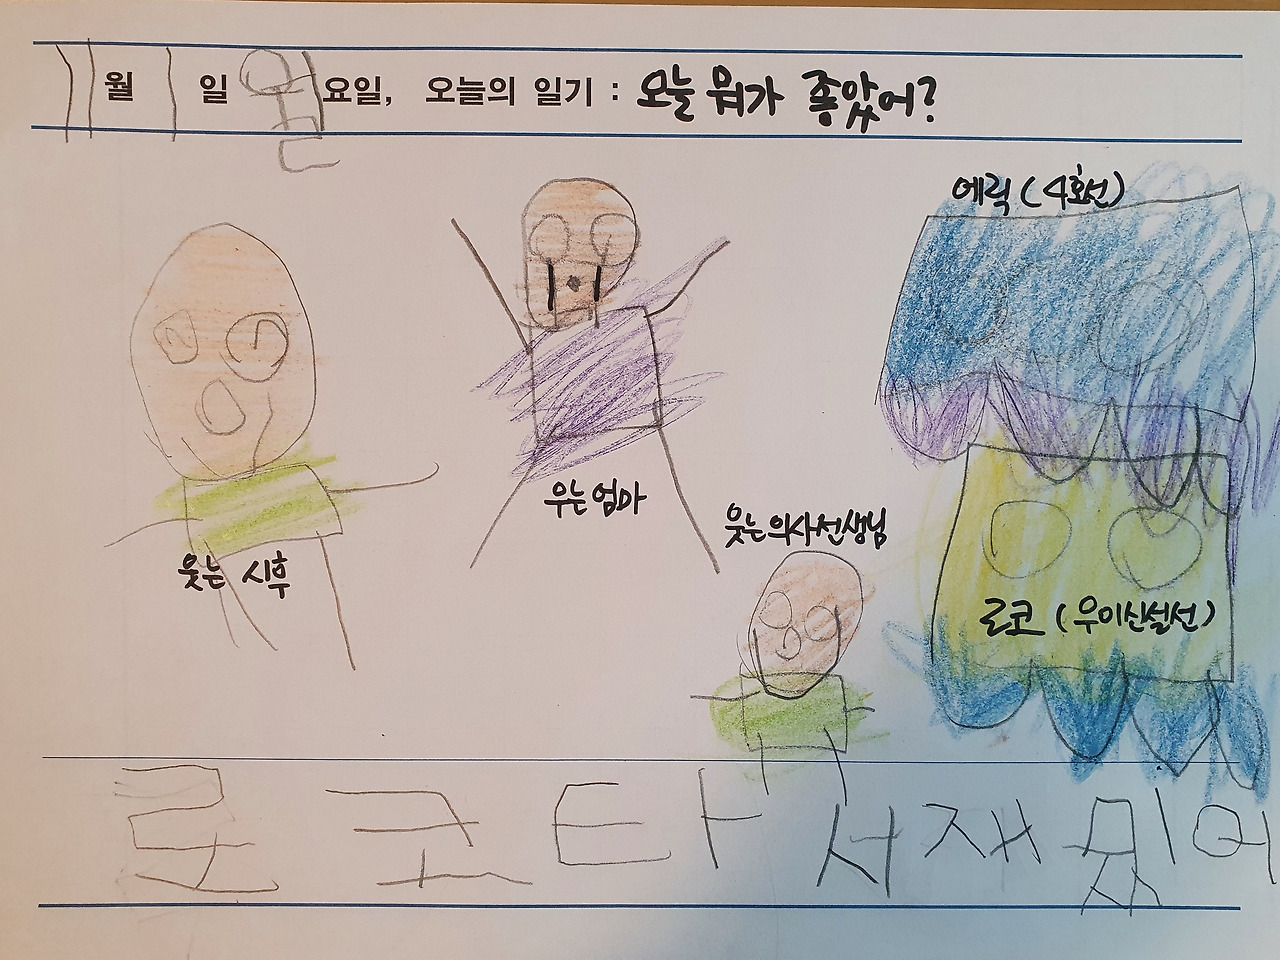 11월 1일 월요일, 오늘의 일기 : 오늘 뭐가 좋았어?
에릭 (4호선)
우는 엄마
웃는 의사선생님
웃는 시후
로코 (우이신설선)
로코타서재밌어